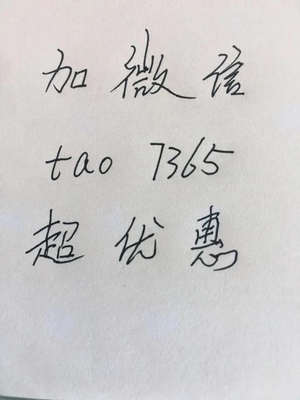 加微信
tao 7365
超优惠